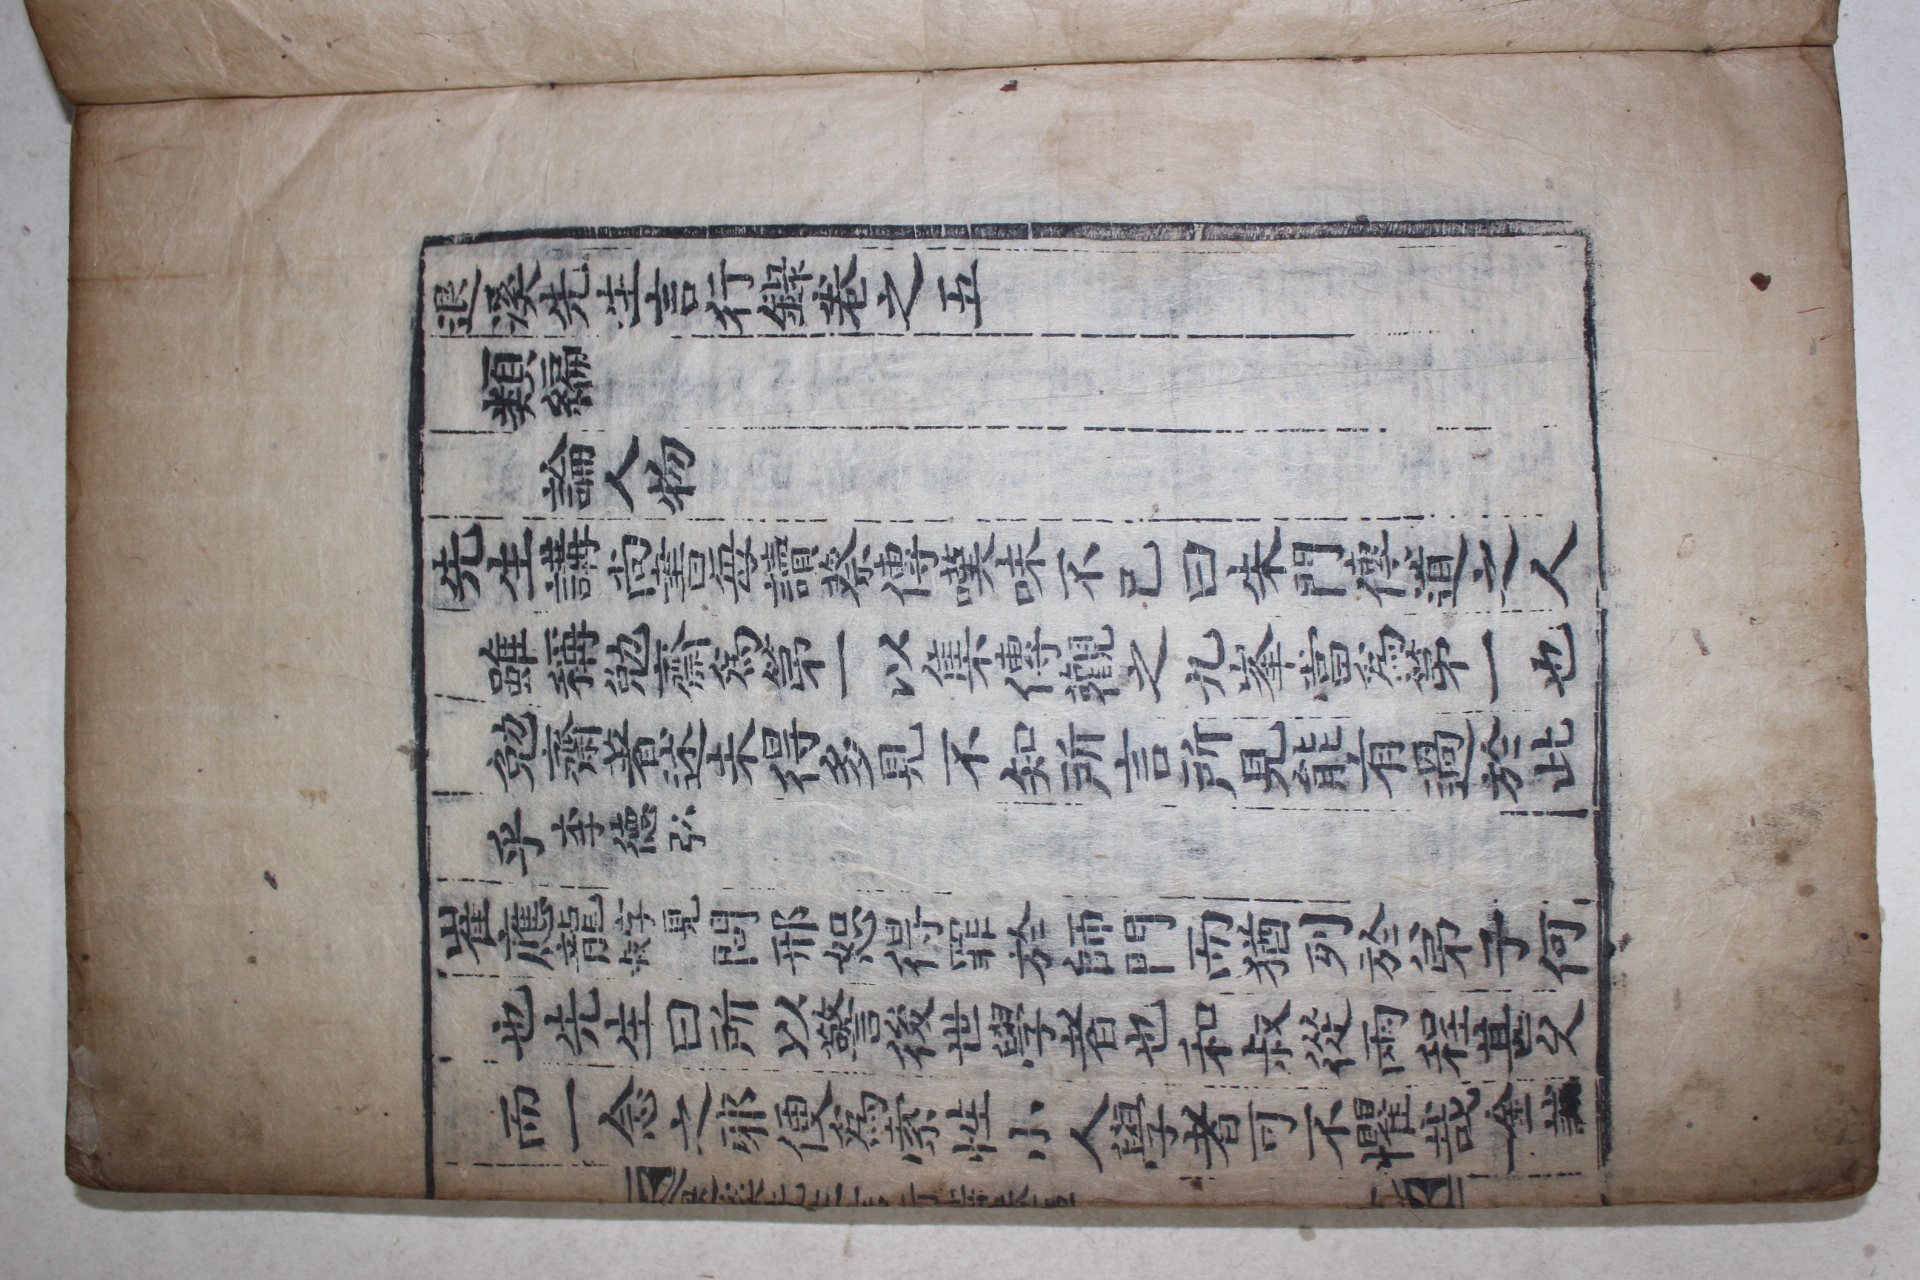 退溪先生言行錄卷之五
類編
論人物
先生講尚書每讀蔡傳嘆味不已曰朱門傳道之人
雖稱勉齋爲第一以集傳觀之九峯當爲第一也
勉齋著述未得多見不知所言所見能有過於此
乎 李德弘
崔應龍 見叔 問邢恕得罪於師門而猶列於弟子何
也先生曰所以警後世學者也和叔從兩程甚久
而一念之邪便爲索性小人學者可不懼哉 金誠一